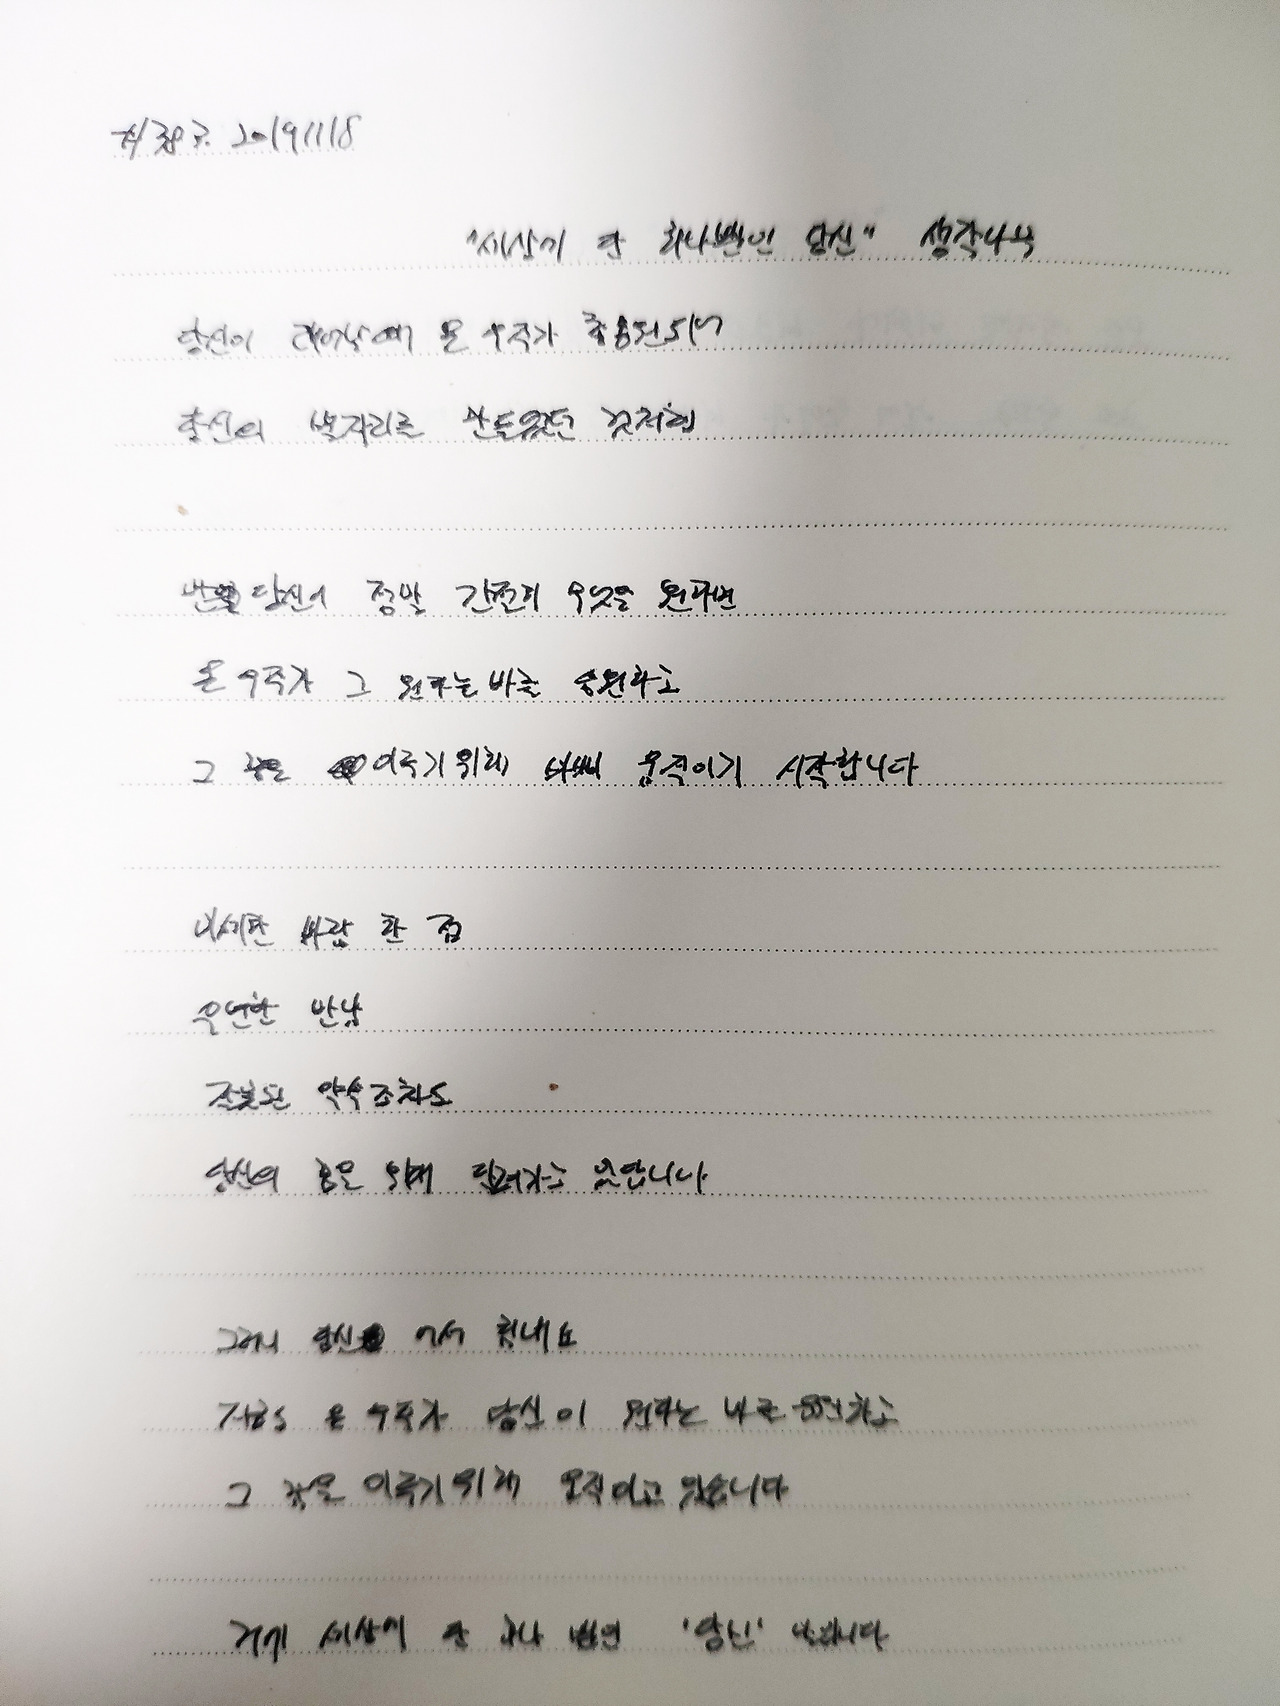 20191118
"세상에 단 하나뿐인 당신" 생각나눔
당신이 태어날때 온 우주가 동원되어
당신의 별자리를 만들었던 것처럼
만일 당신이 정말 간절히 무엇을 원하면
온 우주가 그 원하는 바를 응원하고
그 꿈을 이루기위해 움직이기 시작합니다
미세한 바람 한 점
우연한 만남
잘못된 약속조차도
당신의 꿈을 위해 달려가고 있답니다
그러니 당신 어서 힘내요
지금도 온 우주가 당신이 원하는 바를 응원하고
그 꿈을 이루기위해 움직이고 있습니다
세상에 단 하나 뿐인 '당신'